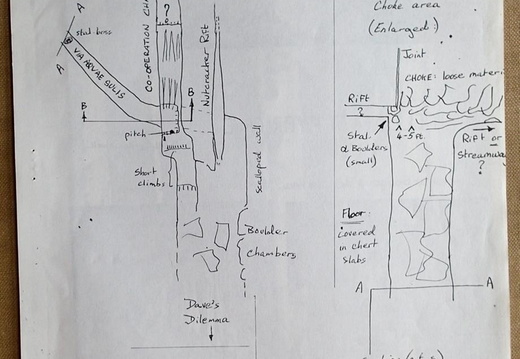 A
?
stal. boss
VIA AQUAE SULIS
A
CO-OPERATION
Nutcracker Rift
B
B
pitch
Short
climbs
scalloped wall
Boulder
Chambers
Dave's
Dilemma
Choke area
(Enlarged)
Joint
CHOKE: loose
Rift
?
Stal.
Boulders
(small)
4-5 ft.
Rift or
Streamway
?
Floor:
Covered
in chert
slabs
A
A